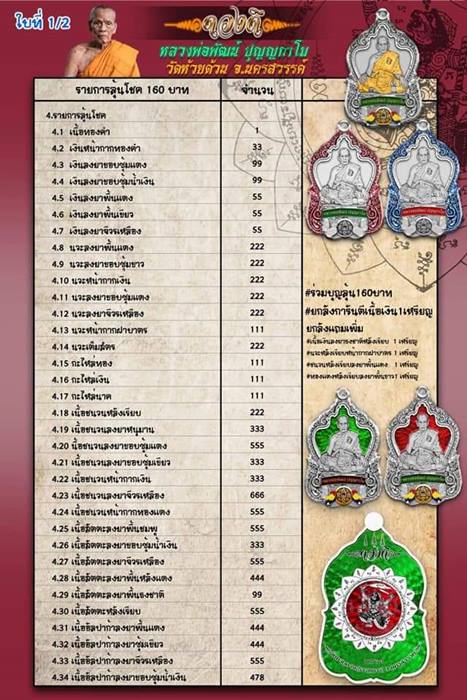 ใบที่ 1/2
ของดี
หลวงพ่อพัฒน์ ปุญญกาโม
วัดห้วยด้วน จ.นครสวรรค์
รายการลุ้นโชค 160 บาท จำนวน
4.รายการลุ้นโชค
4.1 เนื้อทองคำ 1
4.2 เงินหน้ากากทองคำ 33
4.3 เงินลงยาขอบซุ้มแดง 99
4.4 เงินลงยาขอบซุ้มน้ำเงิน 99
4.5 เงินลงยาพื้นแดง 55
4.6 เงินลงยาพื้นเขียว 55
4.7 เงินลงยาจีวรเหลือง 55
4.8 นวะลงยาพื้นแดง 222
4.9 นวะลงยาขอบซุ้มขาว 222
4.10 นวะหน้ากากเงิน 222
4.11 นวะลงยาขอบซุ้มแดง 222
4.12 นวะลงยาจีวรเหลือง 222
4.13 นวะหน้ากากฝาบาตร 111
4.14 นวะเต็มสูตร 222
4.15 กะไหล่ทอง 111
4.16 กะไหล่เงิน 111
4.17 กะไหล่นาค 111
4.18 เนื้อชนวนหลังเรียบ 222
4.19 เนื้อชนวนลงยาหนุมาน 333
4.20 นื้อชนวนลงยาขอบซุ้มแดง 555
4.21 เนื้อชนวนลงยาขอบซุ้มเขียว 333
4.22 เนื้อชนวนหน้ากากเงิน 333
4.23 เนื้อชนวนลงยาจีวรเหลือง 666
4.24 เนื้อชนวนหน้ากากทองแดง 555
4.25 เนื้อสัตตะลงยาพื้นชมพู 555
4.26 เนื้อสัตตะลงยาขอบซุ้มน้ำเงิน 333
4.27 เนื้อสัตตะลงยาจีวรเหลือง 555
4.28 เนื้อสัตตะลงยาพื้นหลังแดง 444
4.29 เนื้อสัตตะลงยาพื้นธงชาติ 99
4.30 เนื้อสัตตะหลังเรียบ 555
4.31 เนื้ออัลปาก้าลงยาพื้นแดง 444
4.32 เนื้ออัลปาก้าลงยาซุ้มเขียว 444
4.33 เนื้ออัลปาก้าลงยาจีวรเหลือง 555
4.34 เนื้ออัลปาก้าลงยาขอบซุ้มน้ำเงิน 478
#ร่วมบุญลุ้น160บาท
#ยกลังการันตีเนื้อเงิน1เหรียญ
ยกลังแถมเพิ่ม
#เนื้อเงินลงยาธงชาติหลังเรียบ 1 เหรียญ
#นวะหลังเรียบหน้ากากฝาบาตร 1 เหรียญ
#ชนวนหลังเรียบลงยาพื้นแดง 1 เหรียญ
#ทองแดงหลังเรียบลงยาพื้นขาว1 เหรียญ